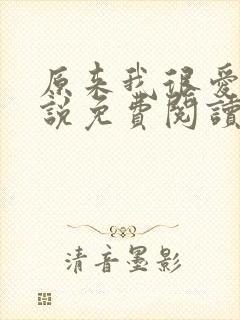 原来我很愛
說免費閱讀
清音墨影